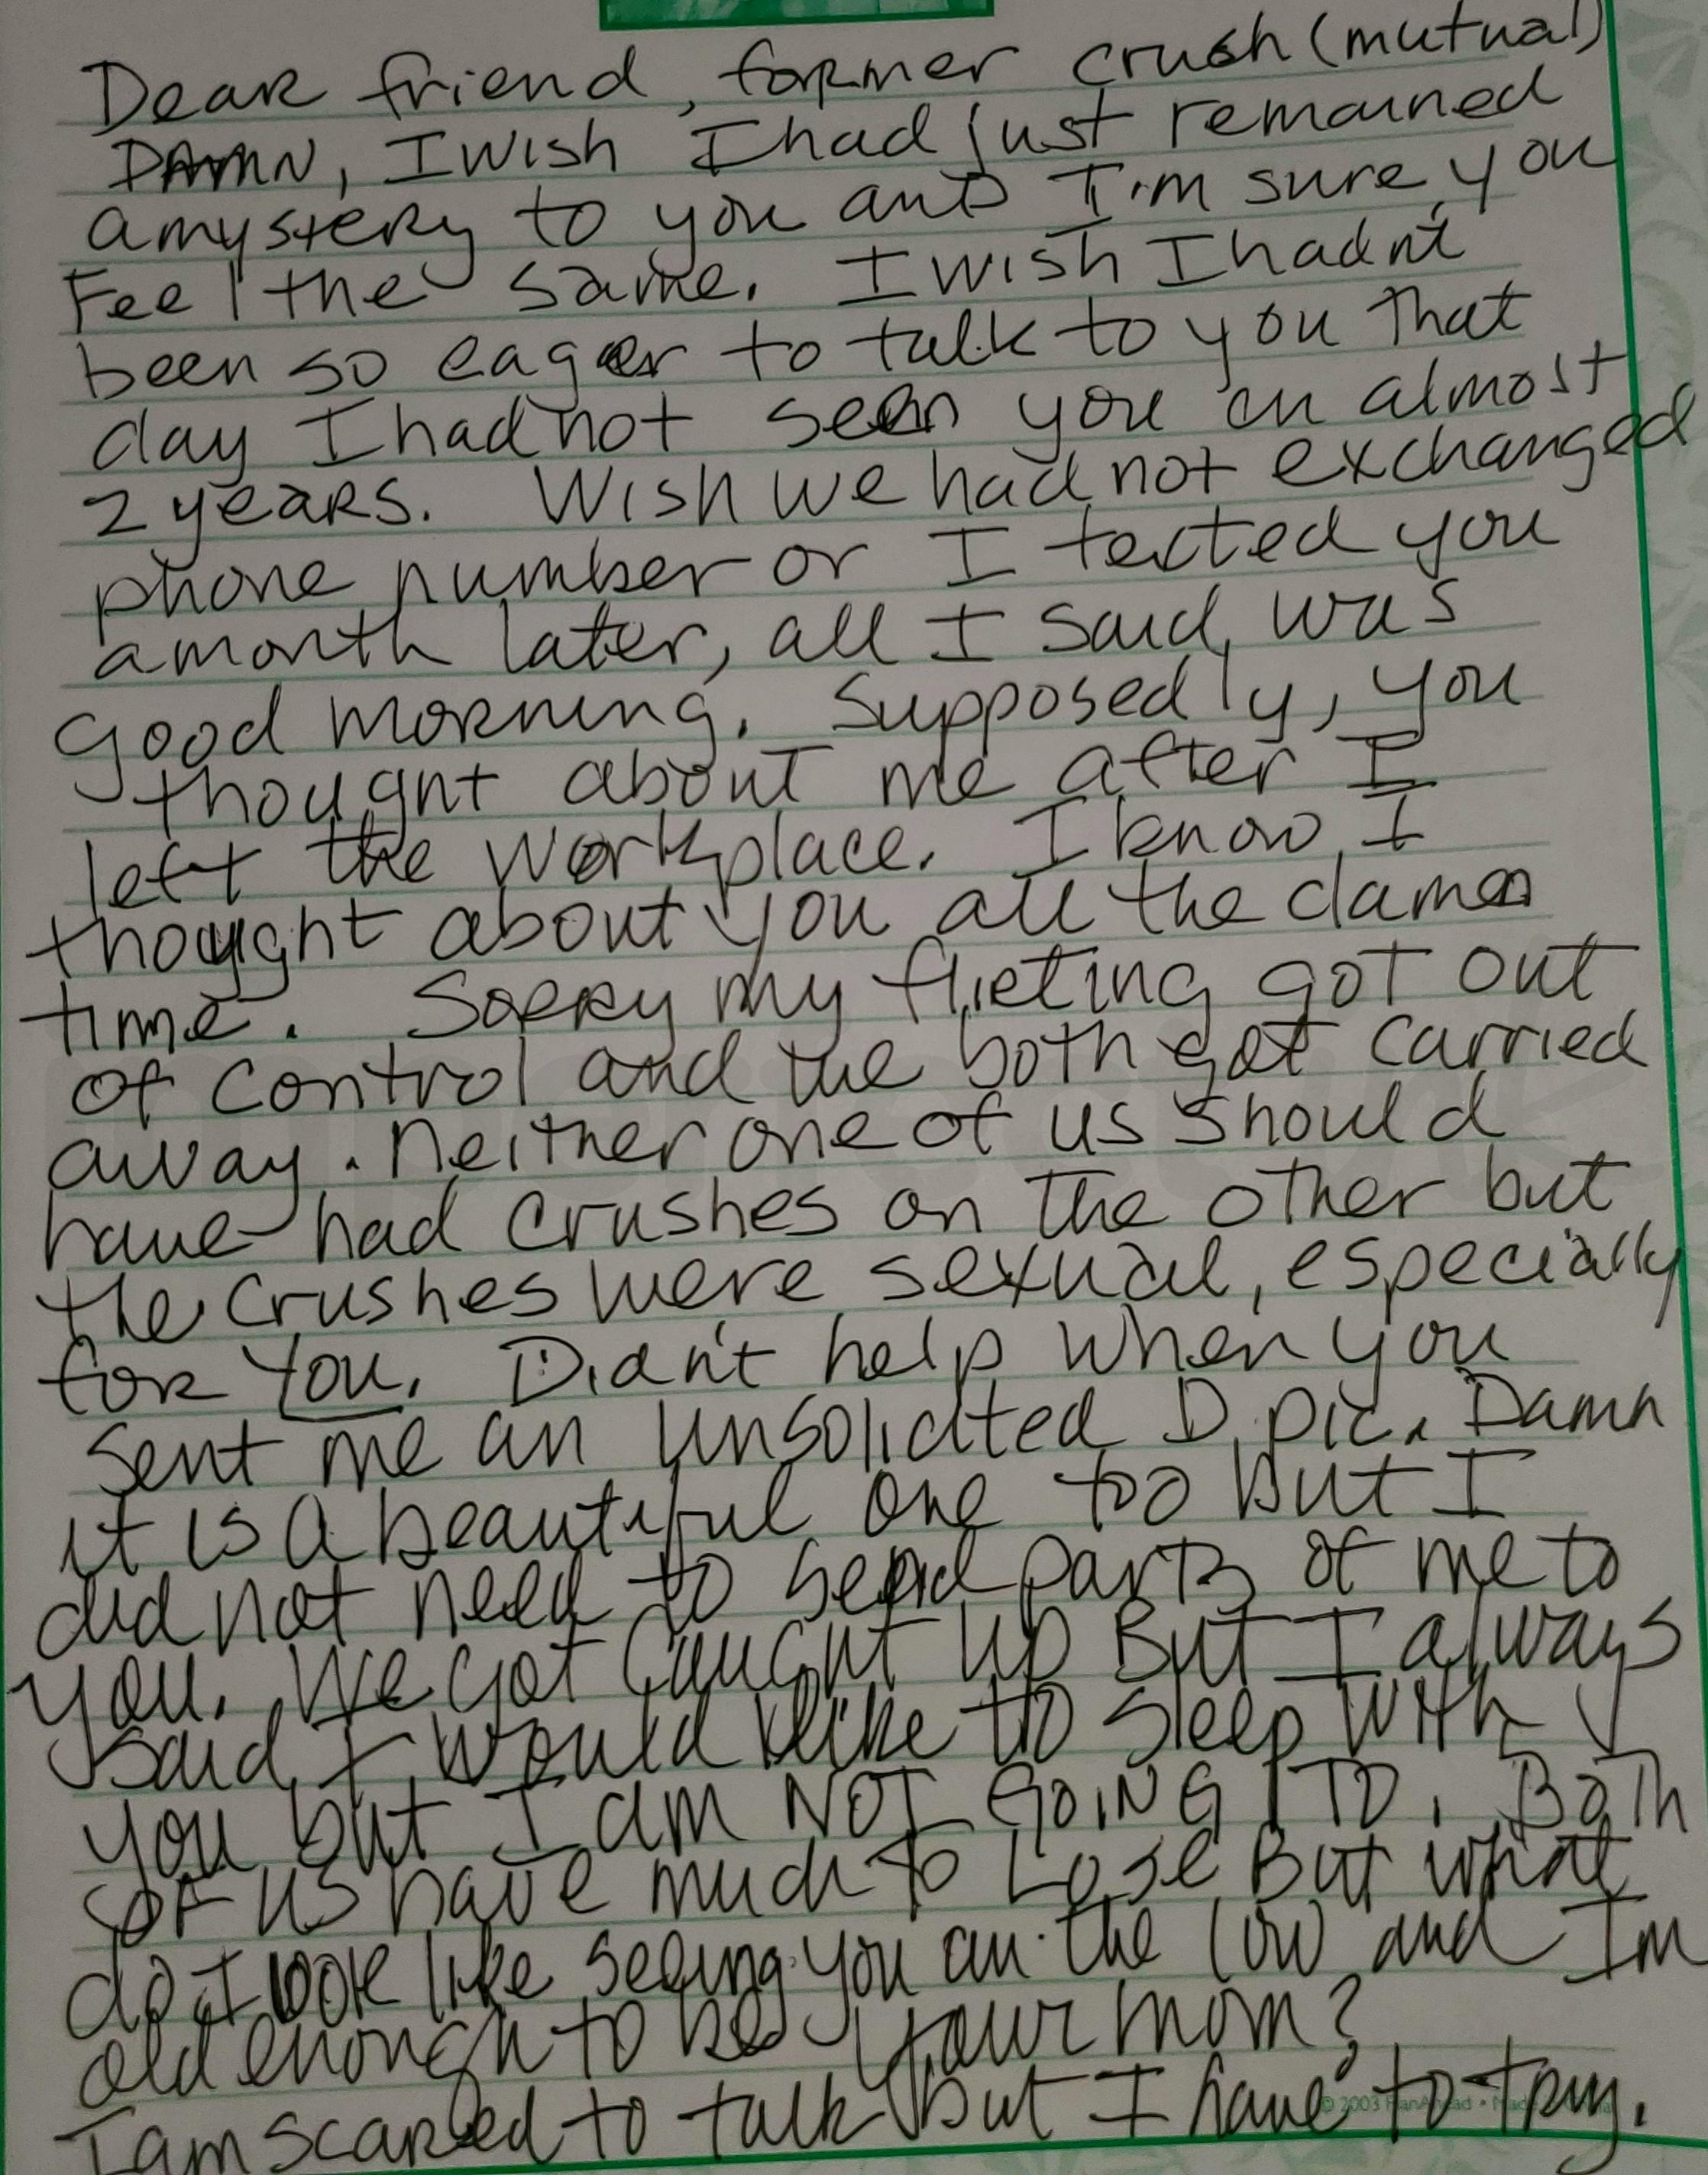 Dear friend, former crush (mutual)
DAMN, I wish I had just remained
a mystery to you and I'm sure you
Feel the same. I wish I hadn't
been so eager to talk to you that
day I had not seen you in almost
2 years. Wish we had not exchanged
phone number or I texted you
a month later, all I said was
good morning. Supposedly, you
thought about me after I
left the workplace. I know I
thought about you all the damn
time. Sorry my flirting got out
of control and we both got carried
away. Neither one of us should
have had crushes on the other but
the crushes were sexual, especially
for you. Didn't help when you
sent me an unsolicited D pic. Damn
it is a beautiful one too But I
did not need to send parts of me to
you. We got caught up But I always
said I would like to sleep with
you but I am NOT GOING TO. Both
OF us have much to Lose But what
do I look like seeing you on the low and Im
old enough to be your mom?
I am scared to talk but I have to try.
© 2003 PlanAhead • Made